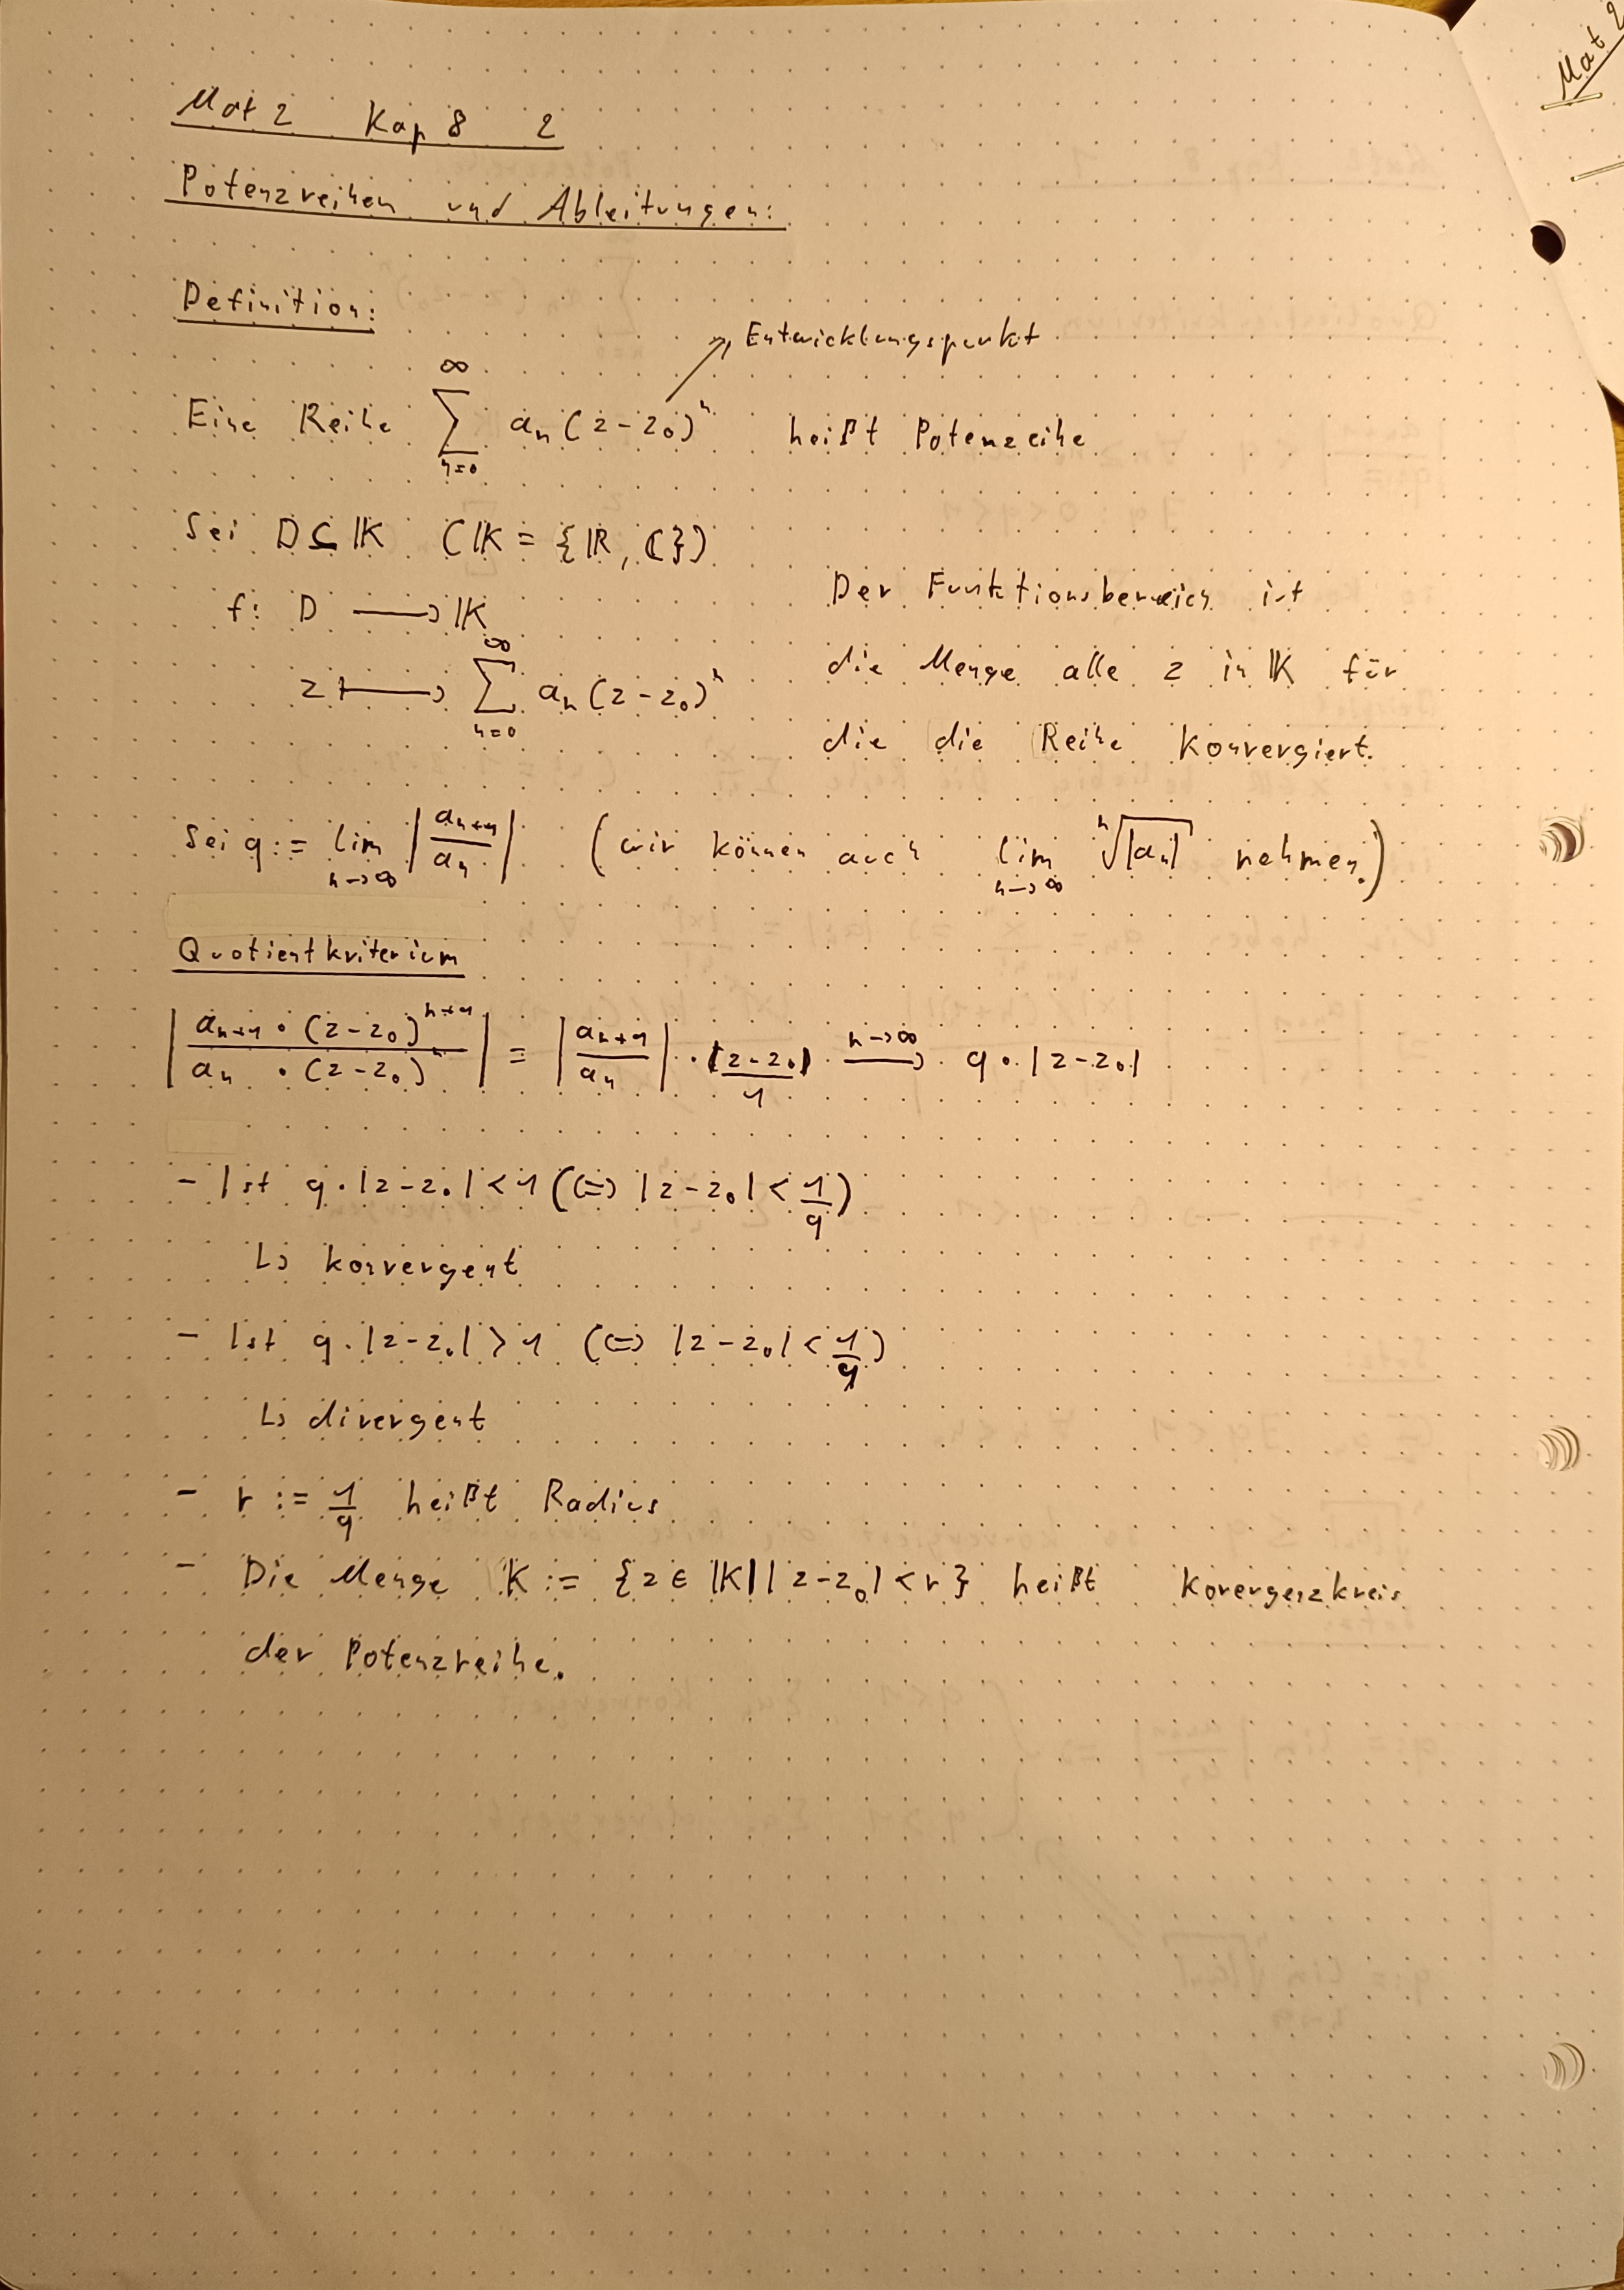 Mat 2
Mat 2 Kap 8 2
Potenzreihen und Ableitungen:
Definition:
Entwicklungspunkt
Eine Reihe ∑_{n=0}^{∞} a_n (z-z_0)^n heißt Potenzreihe
Sei D ⊆ 𝕂 (𝕂 = {ℝ, ℂ})
f: D ⟶ 𝕂
z ⟼ ∑_{n=0}^{∞} a_n (z-z_0)^n
Der Funktionsbereich ist
die Menge alle z in 𝕂 für
die die Reihe konvergiert.
Sei q := lim_{n→∞} |a_{n+1}/a_n| (wir können auch lim_{n→∞} ⁿ√|a_n| nehmen.)
Quotientkriterium
|a_{n+1} • (z-z_0)^{n+1} / a_n • (z-z_0)^n| = |a_{n+1}/a_n| • |z-z_0|/1 ⟶^{n→∞} q • |z-z_0|
- Ist q • |z-z_0| < 1 (⇔ |z-z_0| < 1/q)
↳ konvergent
- Ist q • |z-z_0| > 1 (⇔ |z-z_0| < 1/q)
↳ divergent
- r := 1/q heißt Radius
- Die Menge K := {z ∈ 𝕂 | |z-z_0| < r} heißt Kovergenzkreis
der Potenzreihe.